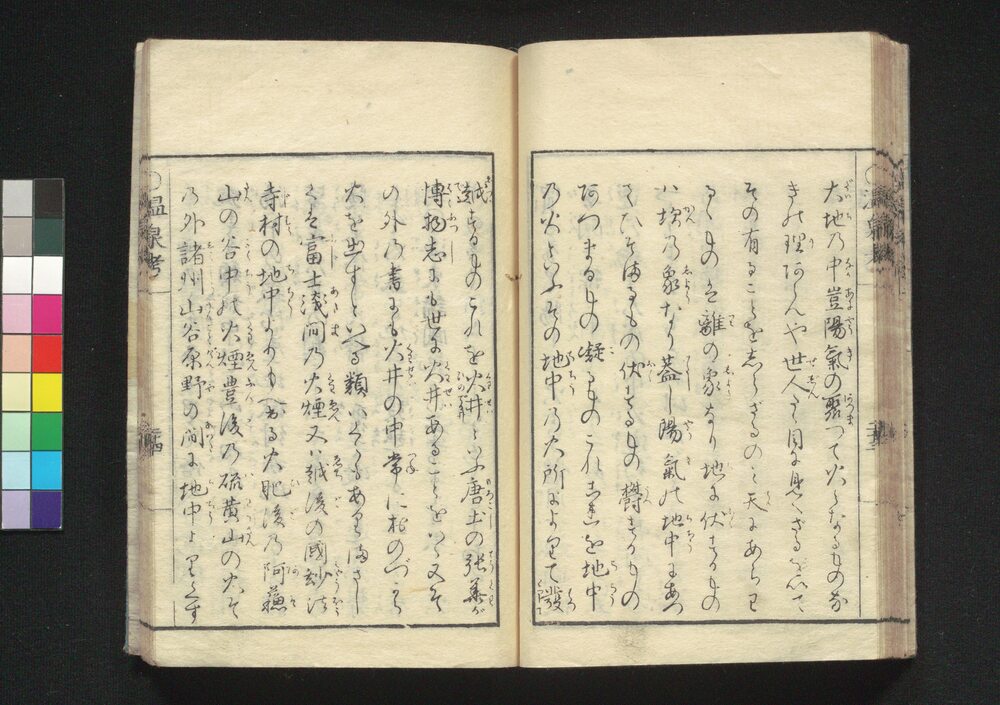 大地乃中豈陽氣の聚つて火となるもの無
きの理あらんや世人たゞ目に見へざるを以て
その有ることをしらざるのミ天にあらわ
るゝものを離の象なり地に伏するもの
ハ坎乃象なり蓋し陽氣の地中にあつ
伏するもの鬱するもの
あつまるもの凝るものこれを地中
乃火といふその地中乃火所によりて發
越するものこれを火井といふ唐土の張華が
博物志にも世に火井あることをいへり又そ
の外乃書にも火井の中常におのづから
火を出すといへる類いくらもあり
富士淺間乃火煙又ハ越後の國妙法
寺村の地中より出る火肥後乃阿蘓
山の谷中の火煙豊後乃硫黄山の火そ
乃外諸州山谷原野の間に地中より
○温泉考
○温泉考